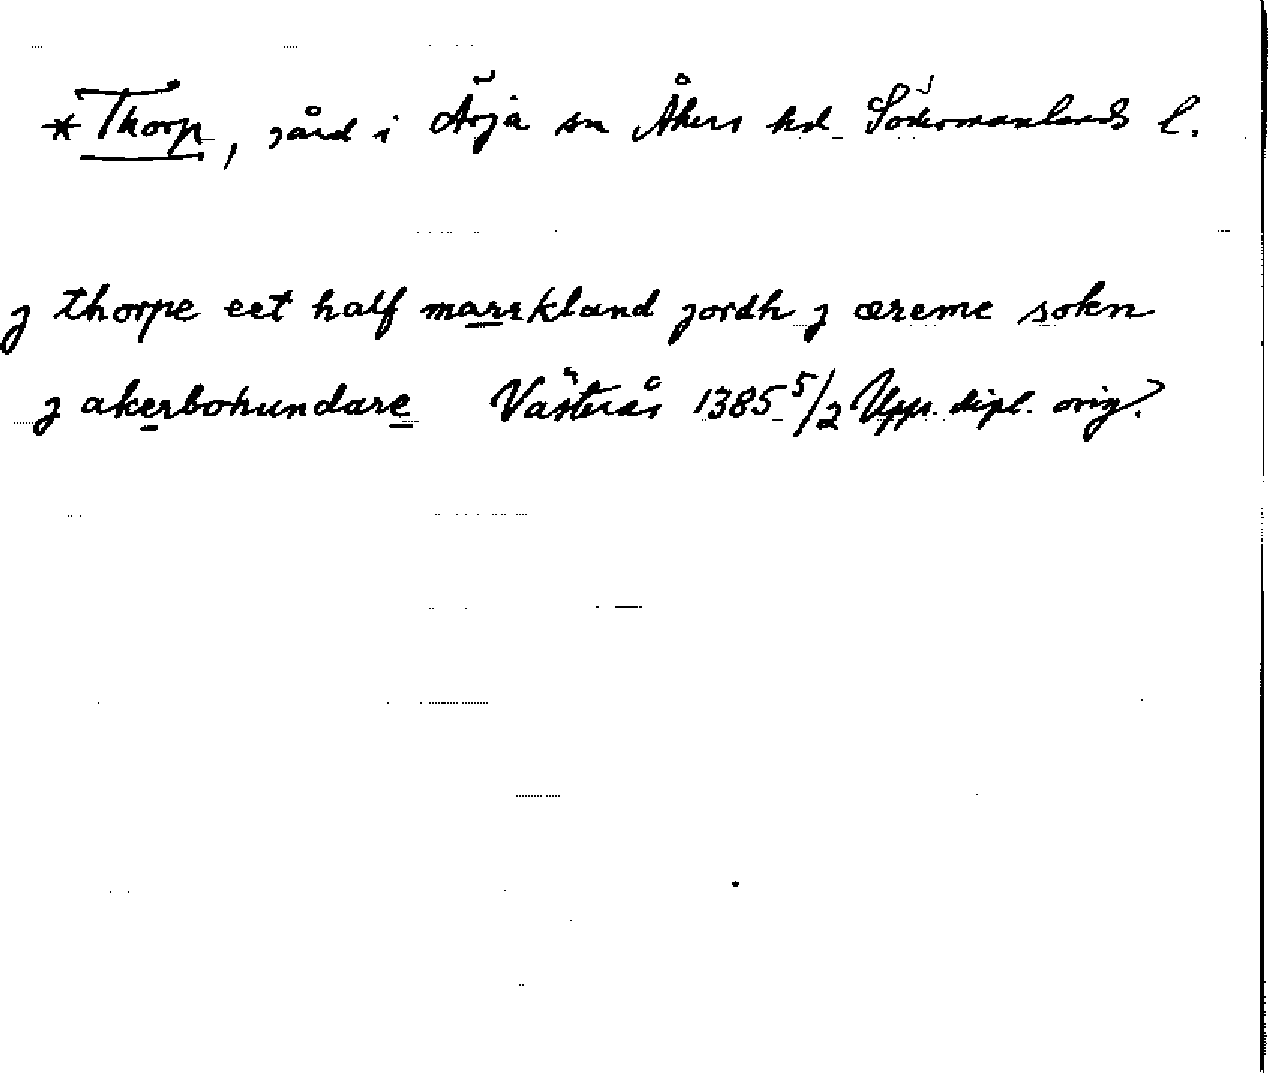 *Thorp, gård i Ärja sn Åkers hd Södermanlands l.
j thorpe eet half marrkland jordh j æreme sokn
j akerbohundare Västerås 1385 5/2 Upps. dipl. orig.